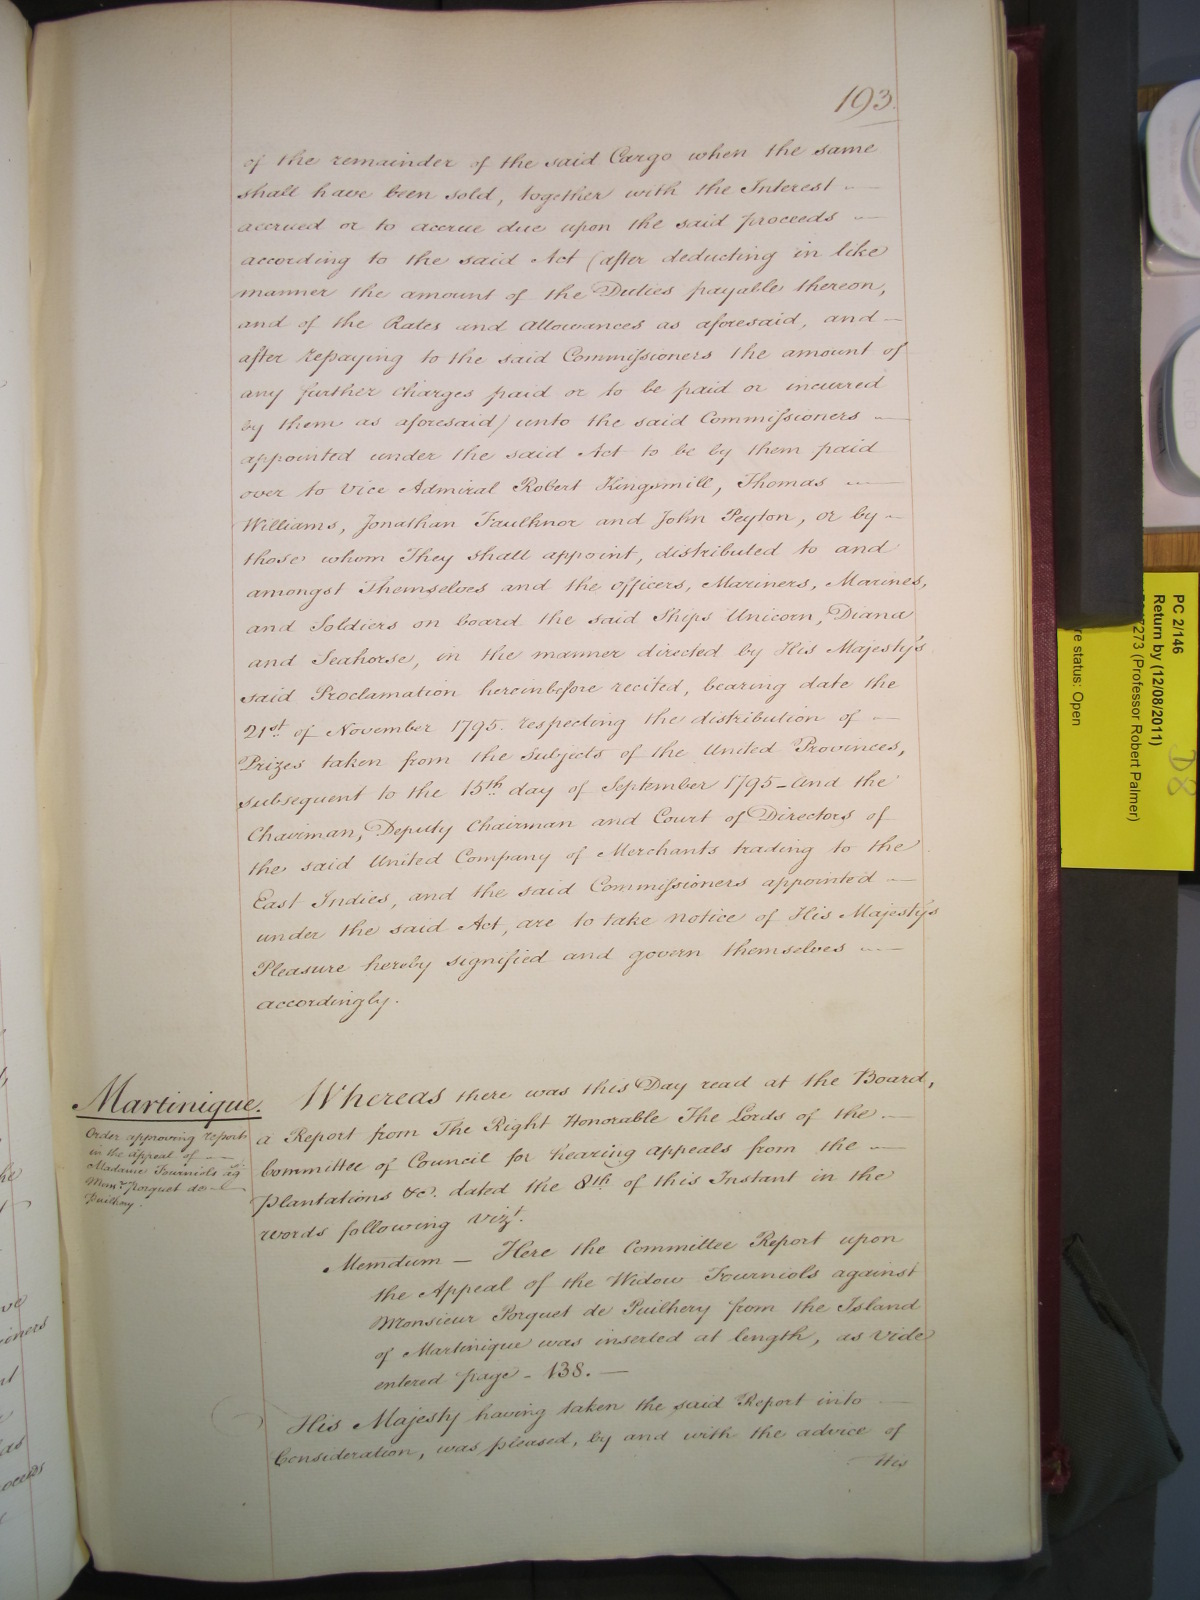 193.
of the remainder of the said Cargo when the same
shall have been sold, together with the Interest —
accrued or to accrue due upon the said proceeds —
according to the said Act (after deducting in like
manner the amount of the Duties payable thereon,
and of the Rates and Allowances as aforesaid, and —
after repaying to the said Commissioners the amount of
any further Charges paid or to be paid or incurred
by them as aforesaid) unto the said Commissioners —
appointed under the said Act to be by them paid
over to Vice Admiral Robert Kingsmill, Thomas —
Williams, Jonathan Faulknor and John Peyton, or by —
those whom They shall appoint, distributed to and
amongst Themselves and the Officers, Mariners, Marines,
and Soldiers on board the said Ships Unicorn, Diana
and Seahorse, in the manner directed by His Majesty's
said Proclamation hereinbefore recited, bearing date the
21st of November 1795. respecting the distribution of —
Prizes taken from the Subjects of the United Provinces,
subsequent to the 15th day of September 1795 – And the
Chairman, Deputy Chairman and Court of Directors of
the said United Company of Merchants trading to the
East Indies, and the said Commissioners appointed —
under the said Act, are to take notice of His Majesty's
Pleasure hereby signified and govern themselves —
accordingly.
Martinique.
Order approving report
in the appeal of —
Madame Fourniols agt
Monr. Porquet de —
Puilhery.
Whereas there was this Day read at the Board,
a Report from The Right Honorable The Lords of the —
Committee of Council for hearing appeals from the —
Plantations &c. dated the 8th of this Instant in the
words following Vizt.
Memdum — Here the Committee Report upon
the Appeal of the Widow Fourniols against
Monsieur Porquet de Puilhery from the Island
of Martinique was inserted at length, as vide
entered page – 138. —
His Majesty having taken the said Report into —
Consideration, was pleased, by and with the advice of
His
PC 2/146
Return by (12/08/2011)
7273 (Professor Robert Palmer)
re status: Open
D8